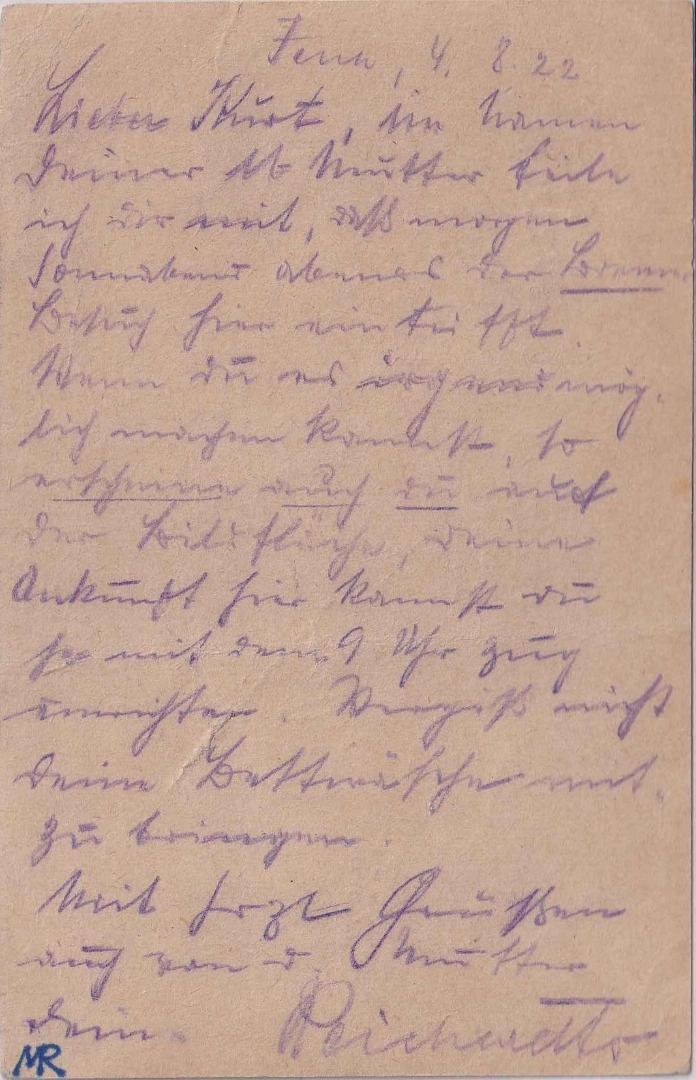 Jena, 4. 8. 22
Lieber Kurt, im Namen
Deiner lb Mutter teile
ich dir mit, daß morgen
Sonnabend abends der Bremer
Besuch hier eintrifft.
Wenn du es irgend mög-
lich machen kannst, so
erscheine auch du auf
der Bildfläche, deine
Ankunft hier kannst du
ja mit dem 9 Uhr Zug
einrichten. Vergiß nicht
deine Bettwäsche mit-
zu bringen.
Mit herzl Grüßen
auch von d. Mutter
dein
MR